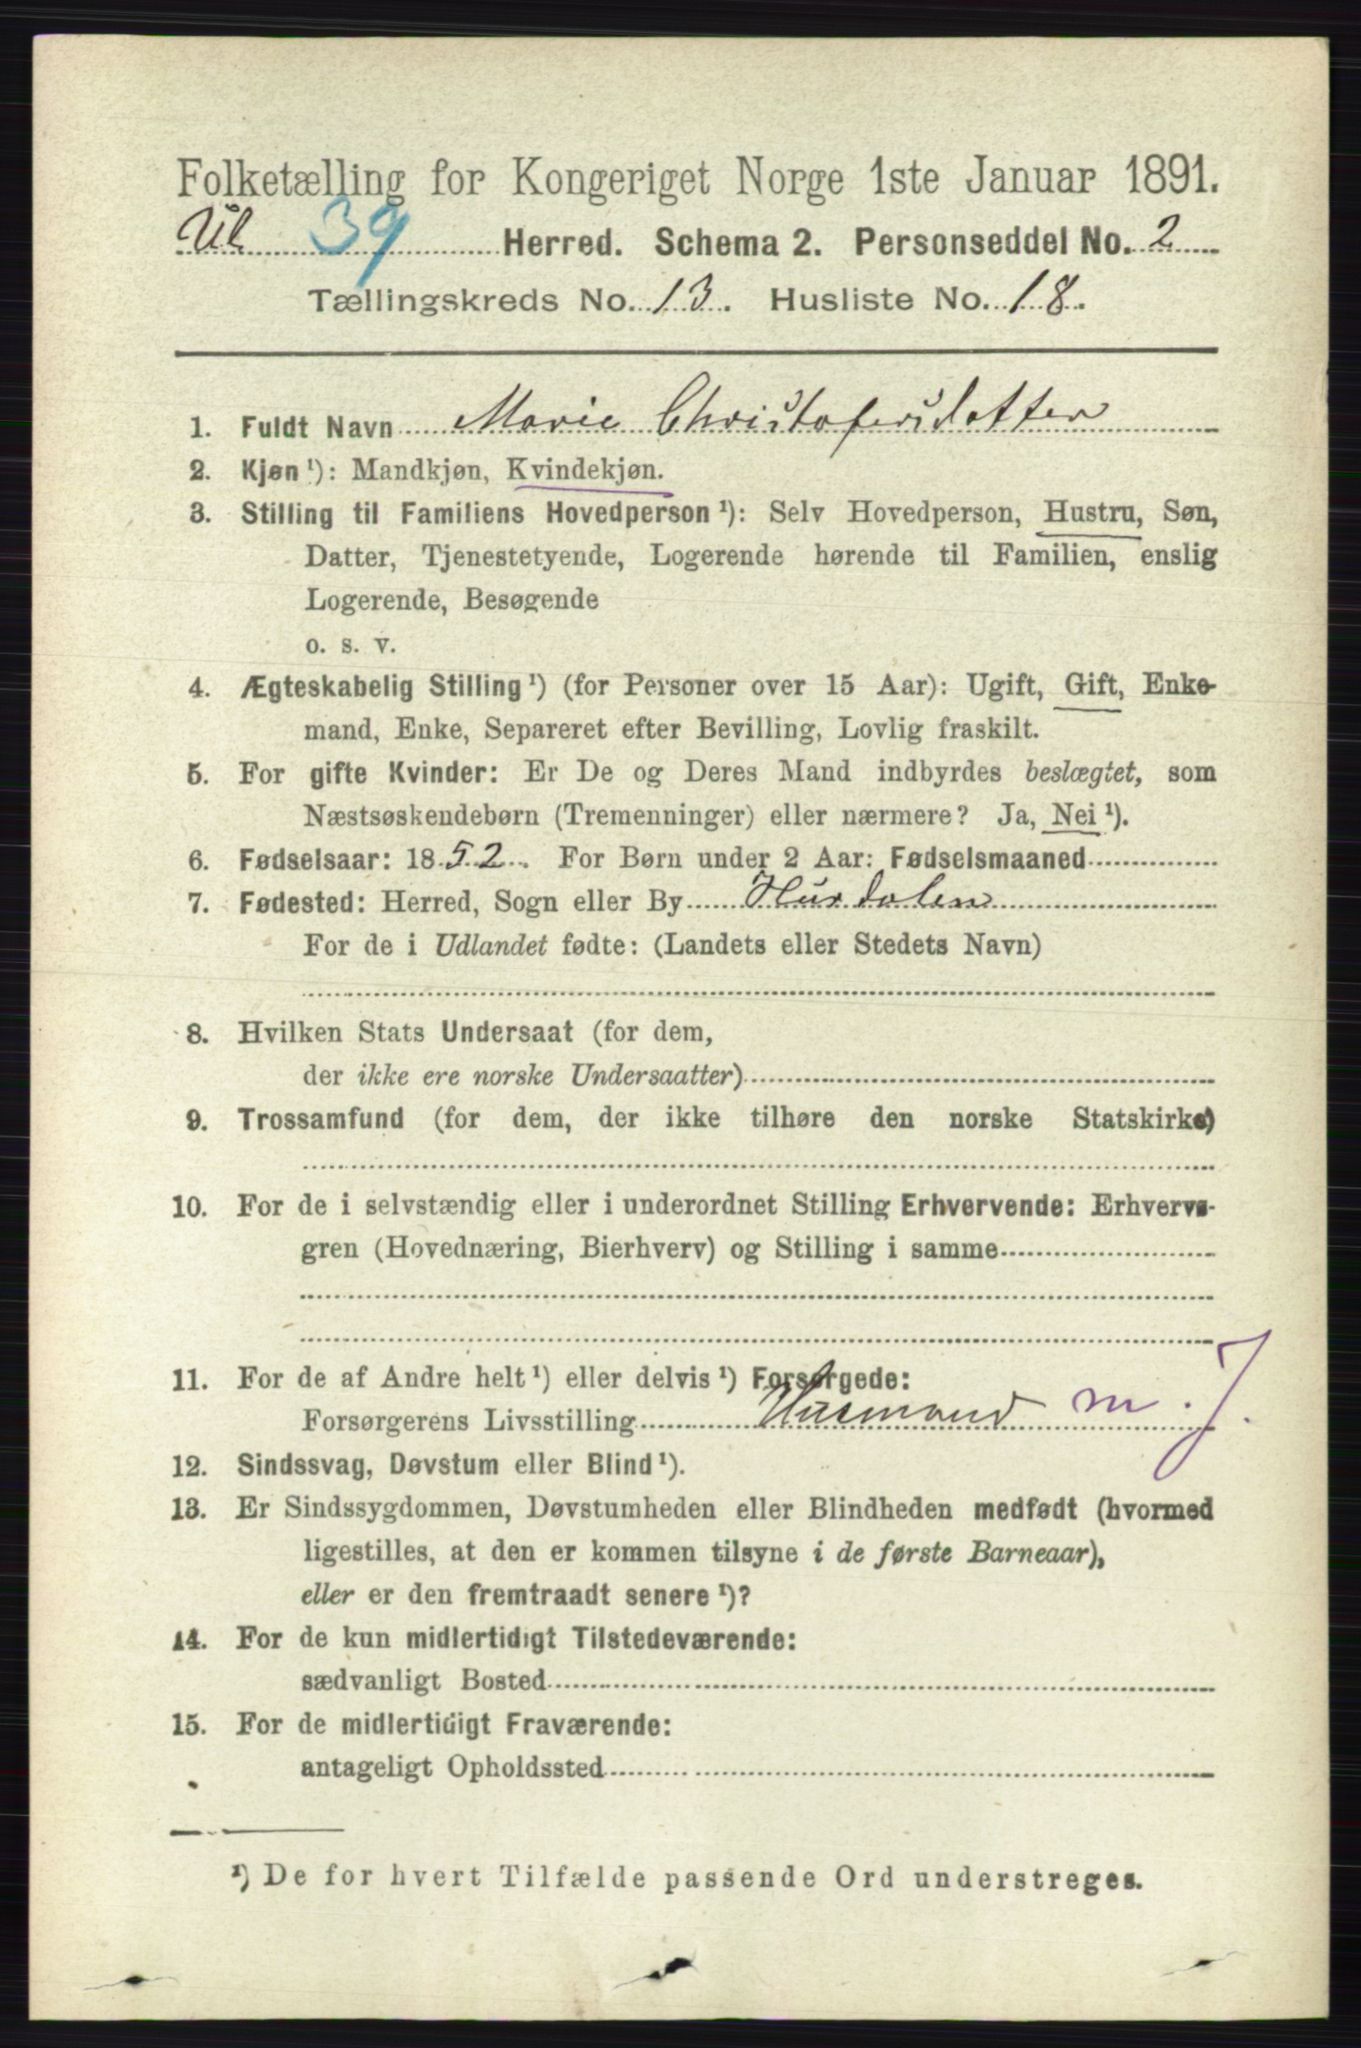 Folketælling for Kongeriget Norge 1ste Januar 1891.
Ul 39 Herred. Schema 2. Personseddel No. 2
Tællingskreds No. 13. Husliste No. 18.
1. Fuldt Navn Marie Christofersdatter
2. Kjøn ¹): Mandkjøn, Kvindekjøn.
3. Stilling til Familiens Hovedperson ¹): Selv Hovedperson, Hustru, Søn,
Datter, Tjenestetyende, Logerende hørende til Familien, enslig
Logerende, Besøgende
o. s. v.
4. Ægteskabelig Stilling ¹) (for Personer over 15 Aar): Ugift, Gift, Enke-
mand, Enke, Separeret efter Bevilling, Lovlig fraskilt.
5. For gifte Kvinder: Er De og Deres Mand indbyrdes beslægtet, som
Næstsøskendebørn (Tremenninger) eller nærmere? Ja, Nei ¹).
6. Fødselsaar: 1852. For Børn under 2 Aar: Fødselsmaaned
7. Fødested: Herred, Sogn eller By Hurdalen
For de i Udlandet fødte: (Landets eller Stedets Navn)
8. Hvilken Stats Undersaat (for dem,
der ikke ere norske Undersaatter)
9. Trossamfund (for dem, der ikke tilhøre den norske Statskirke)
10. For de i selvstændig eller i underordnet Stilling Erhvervende: Erhvervs-
gren (Hovednæring, Bierhverv) og Stilling i samme
11. For de af Andre helt ¹) eller delvis ¹) Forsørgede:
Forsørgerens Livsstilling Husmand m. J.
12. Sindssvag, Døvstum eller Blind ¹).
13. Er Sindssygdommen, Døvstumheden eller Blindheden medfødt (hvormed
ligestilles, at den er kommen tilsyne i de første Barneaar),
eller er den fremtraadt senere ¹)?
14. For de kun midlertidigt Tilstedeværende:
sædvanligt Bosted
15. For de midlertidigt Fraværende:
antageligt Opholdssted
¹) De for hvert Tilfælde passende Ord understreges.